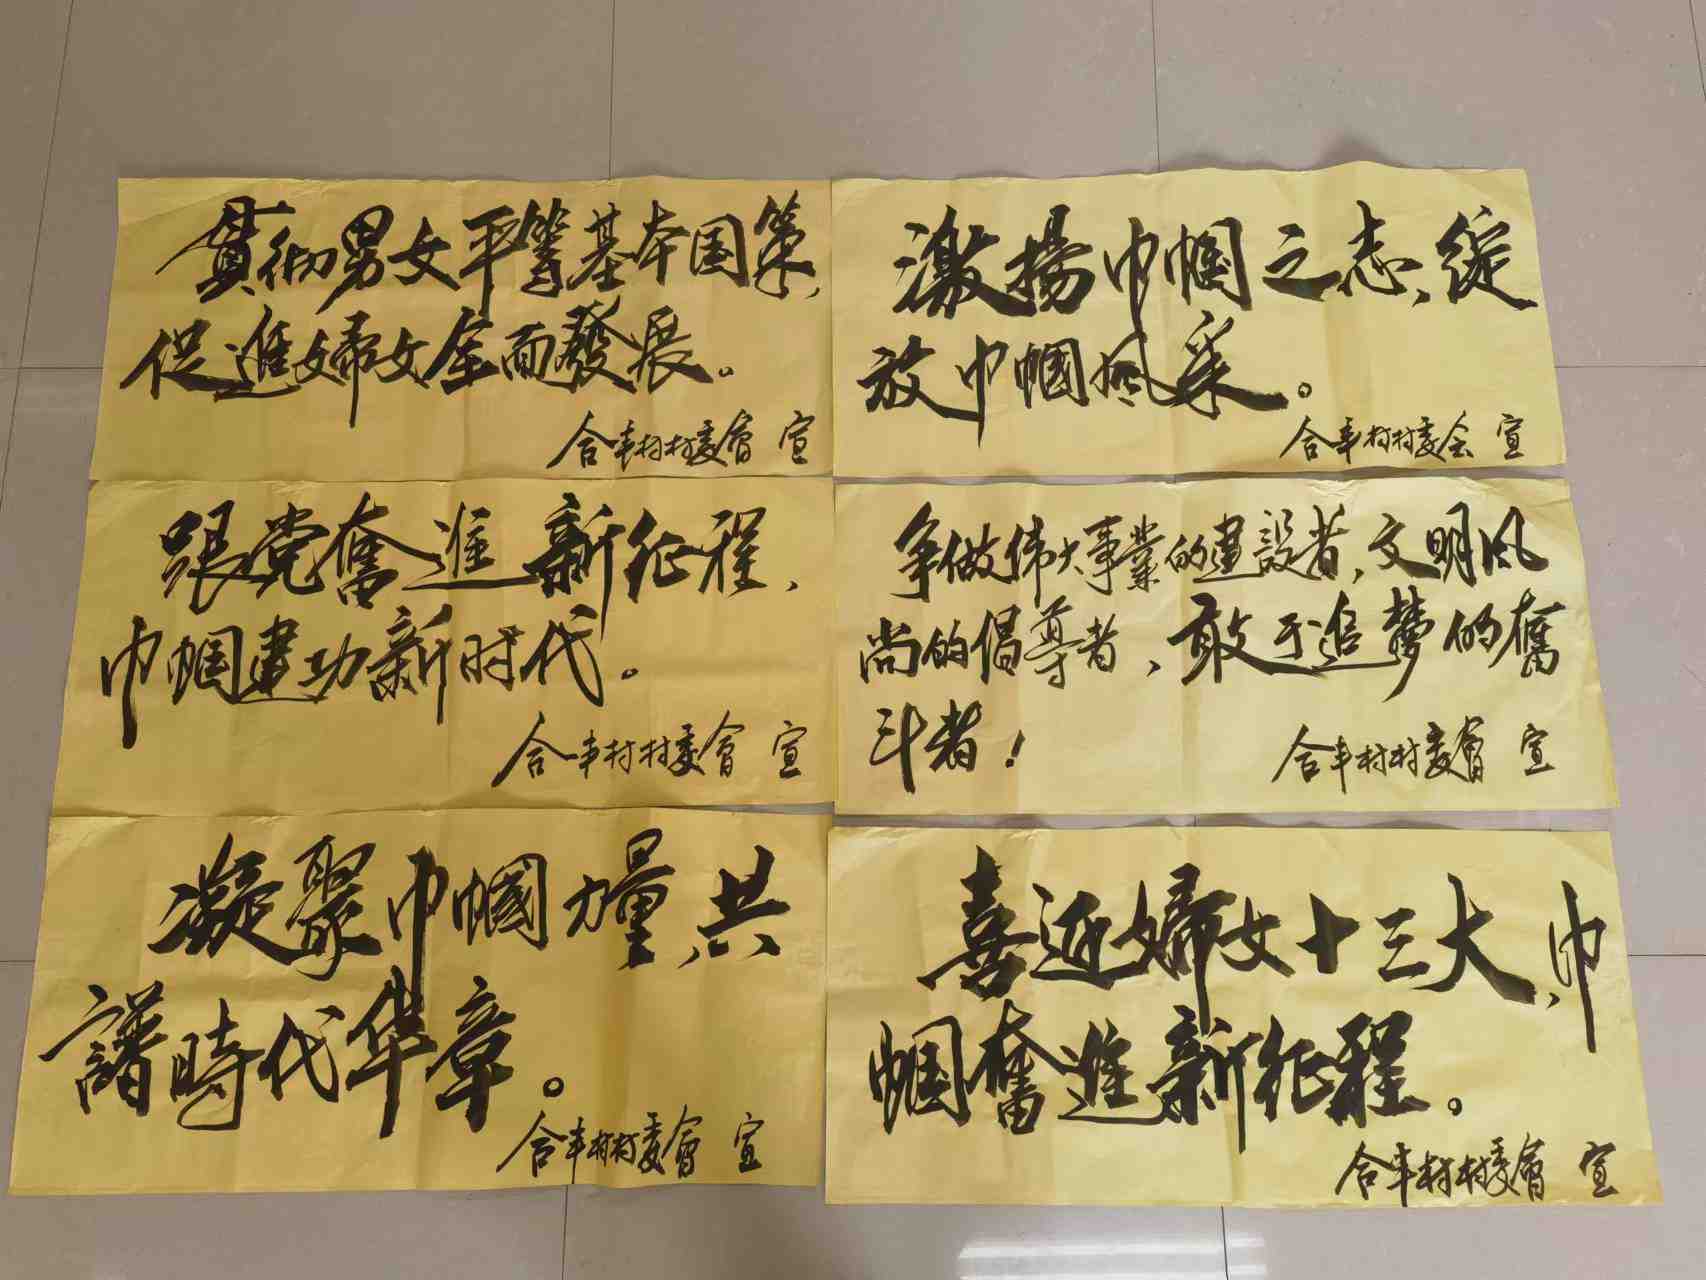 貫彻男女平等基本国策，
促進婦女全面發展。
合丰村村委會 宣
激揚巾帼之志，绽
放巾帼风采。
合丰村村委会 宣
跟党奮進新征程，
巾帼建功新时代。
合丰村村委會 宣
争做伟大事業的建設者，文明风
尚的倡导者，敢于追梦的奮
斗者！
合丰村村委會 宣
凝聚巾帼力量，共
譜時代华章。
合丰村村委會 宣
喜迎婦女十三大，巾
帼奮進新征程。
合丰村村委會 宣